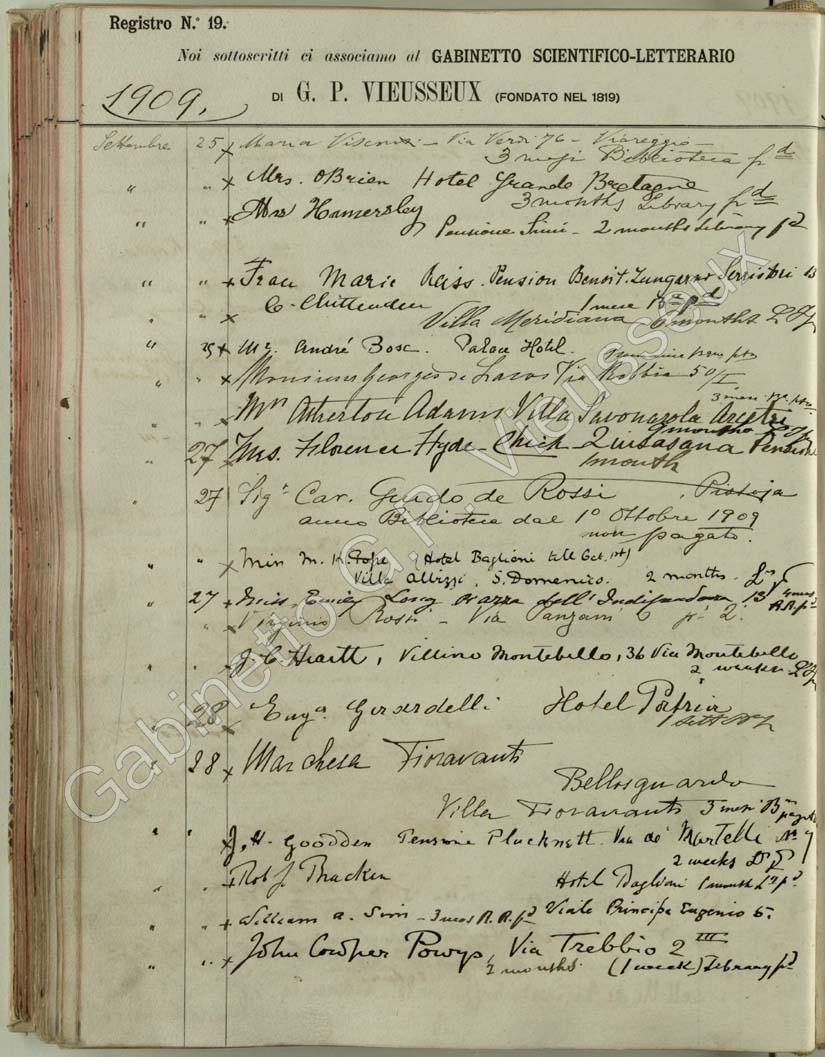 Registro N.º 19.
Noi sottoscritti ci associamo al GABINETTO SCIENTIFICO-LETTERARIO
1909.
DI G. P. VIEUSSEUX (FONDATO NEL 1819)
Settembre 25 x Maria Visconti - Via Verdi 76 - Viareggio -
3 mesi Biblioteca pd
" " x Mrs. OBrien Hotel Grande Bretagne
3 months Library pd
" " x Hamersley
Pensione Simi - 2 months Library pd
" " x Frau Marie Reiss. Pension Benoit. Lungarno Serristori 13
1 mese pd
" " x C. Chittenden
Villa Meridiana 6 months
" 25 x Mr. André Bosc. Palace Hotel.
" " x Monsieur Georges de Via Robbia 50/I
3 mesi
" " x Mrs Atherton Adams Villa Savonarola Arcetri
" 27 x Mrs. Florence Hyde - Quisisana Pension
1 month
27 Sigr Cav. Guido de Rossi, Pistoja
anno Biblioteca dal 1º Ottobre 1909
non pagato.
" " x Miss M. K. Pope (Hotel Baglioni till Oct. 1st)
Villa Albizzi, S. Domenico. 2 months.
" 27 x Miss Emily Long Piazza dell'Indipendenza 13
" x Virginio Rossi - Via Panzani
" " x J. C. Heartt, Villino Montebello, 36 Via Montebello
2 weeks
" 28 Eug. Girardelli Hotel
" 28 x Marchesa Fioravanti
Bellosguardo
Villa Fioravanti 3 mesi
" " x J. H. Goodden Pensione Plucknett. Via de' Martelli No 7
2 weeks
" " x Robt J. Thacken Hotel Baglioni 1 month pd
" " x William A. Sim - 3 mos R.R. pd Viale Principe Eugenio 5.
" " x John Cowper Powys, Via Trebbio 2 III
2 months. (1 week) Library pd
Gabinetto G.P. Vieusseux